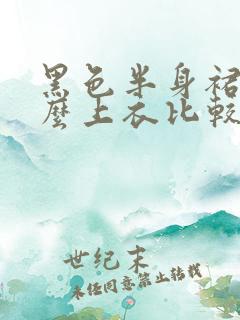 黑色半身裙
麼上衣比較
世纪末
未经同意禁止转载